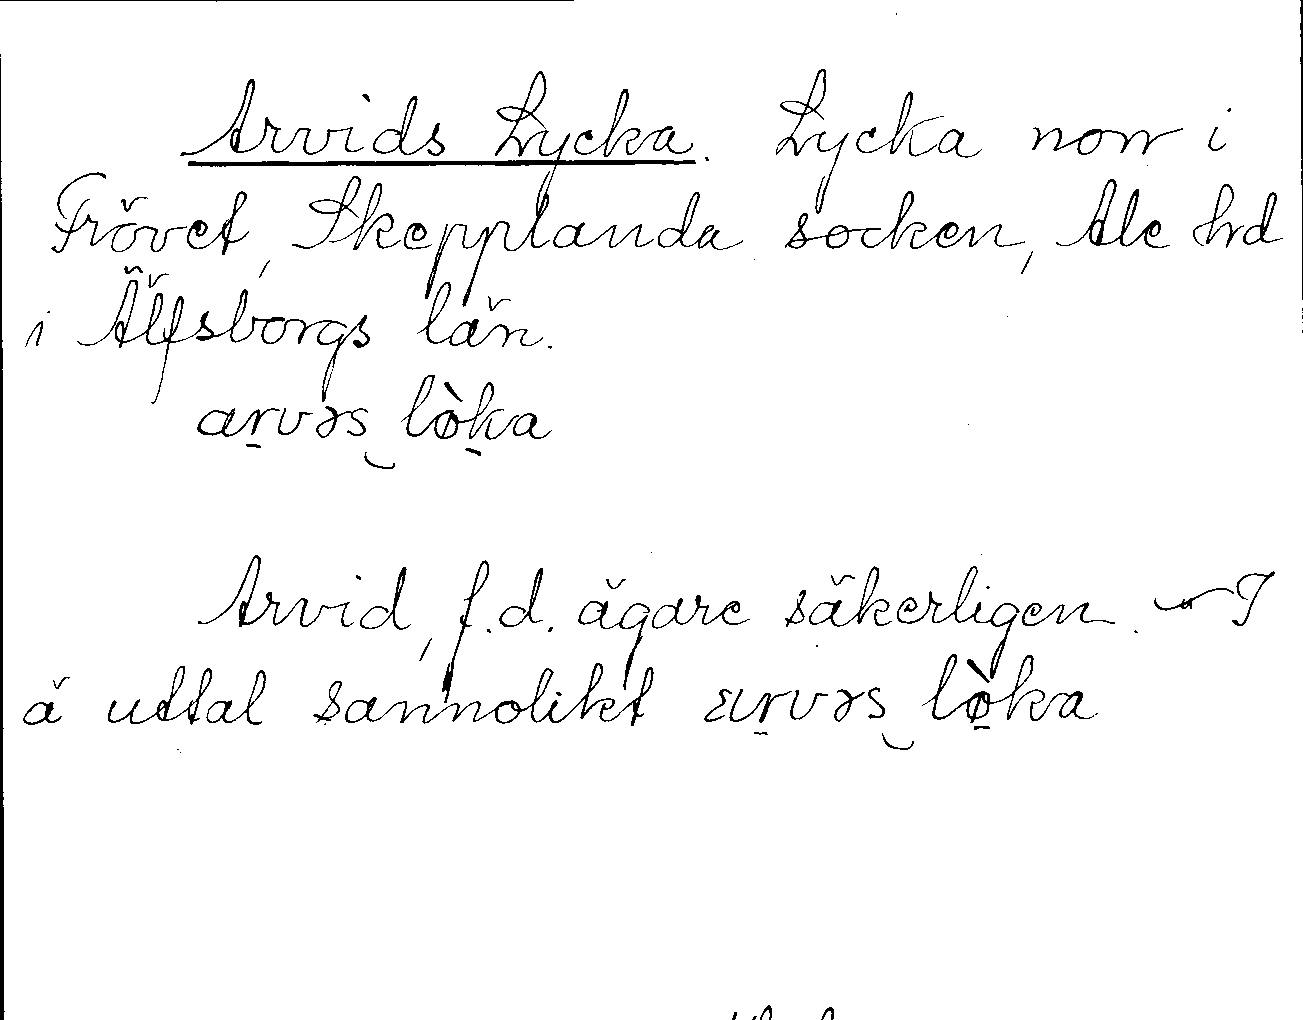 Arvids Lycka. Lycka norr i
Frövet, Skepplanda socken, Ale hrd
i Älfsborgs län.
arvəs løka
Arvid, f.d. ägare säkerligen. — I
ä uttal sannolikt arvəs løka